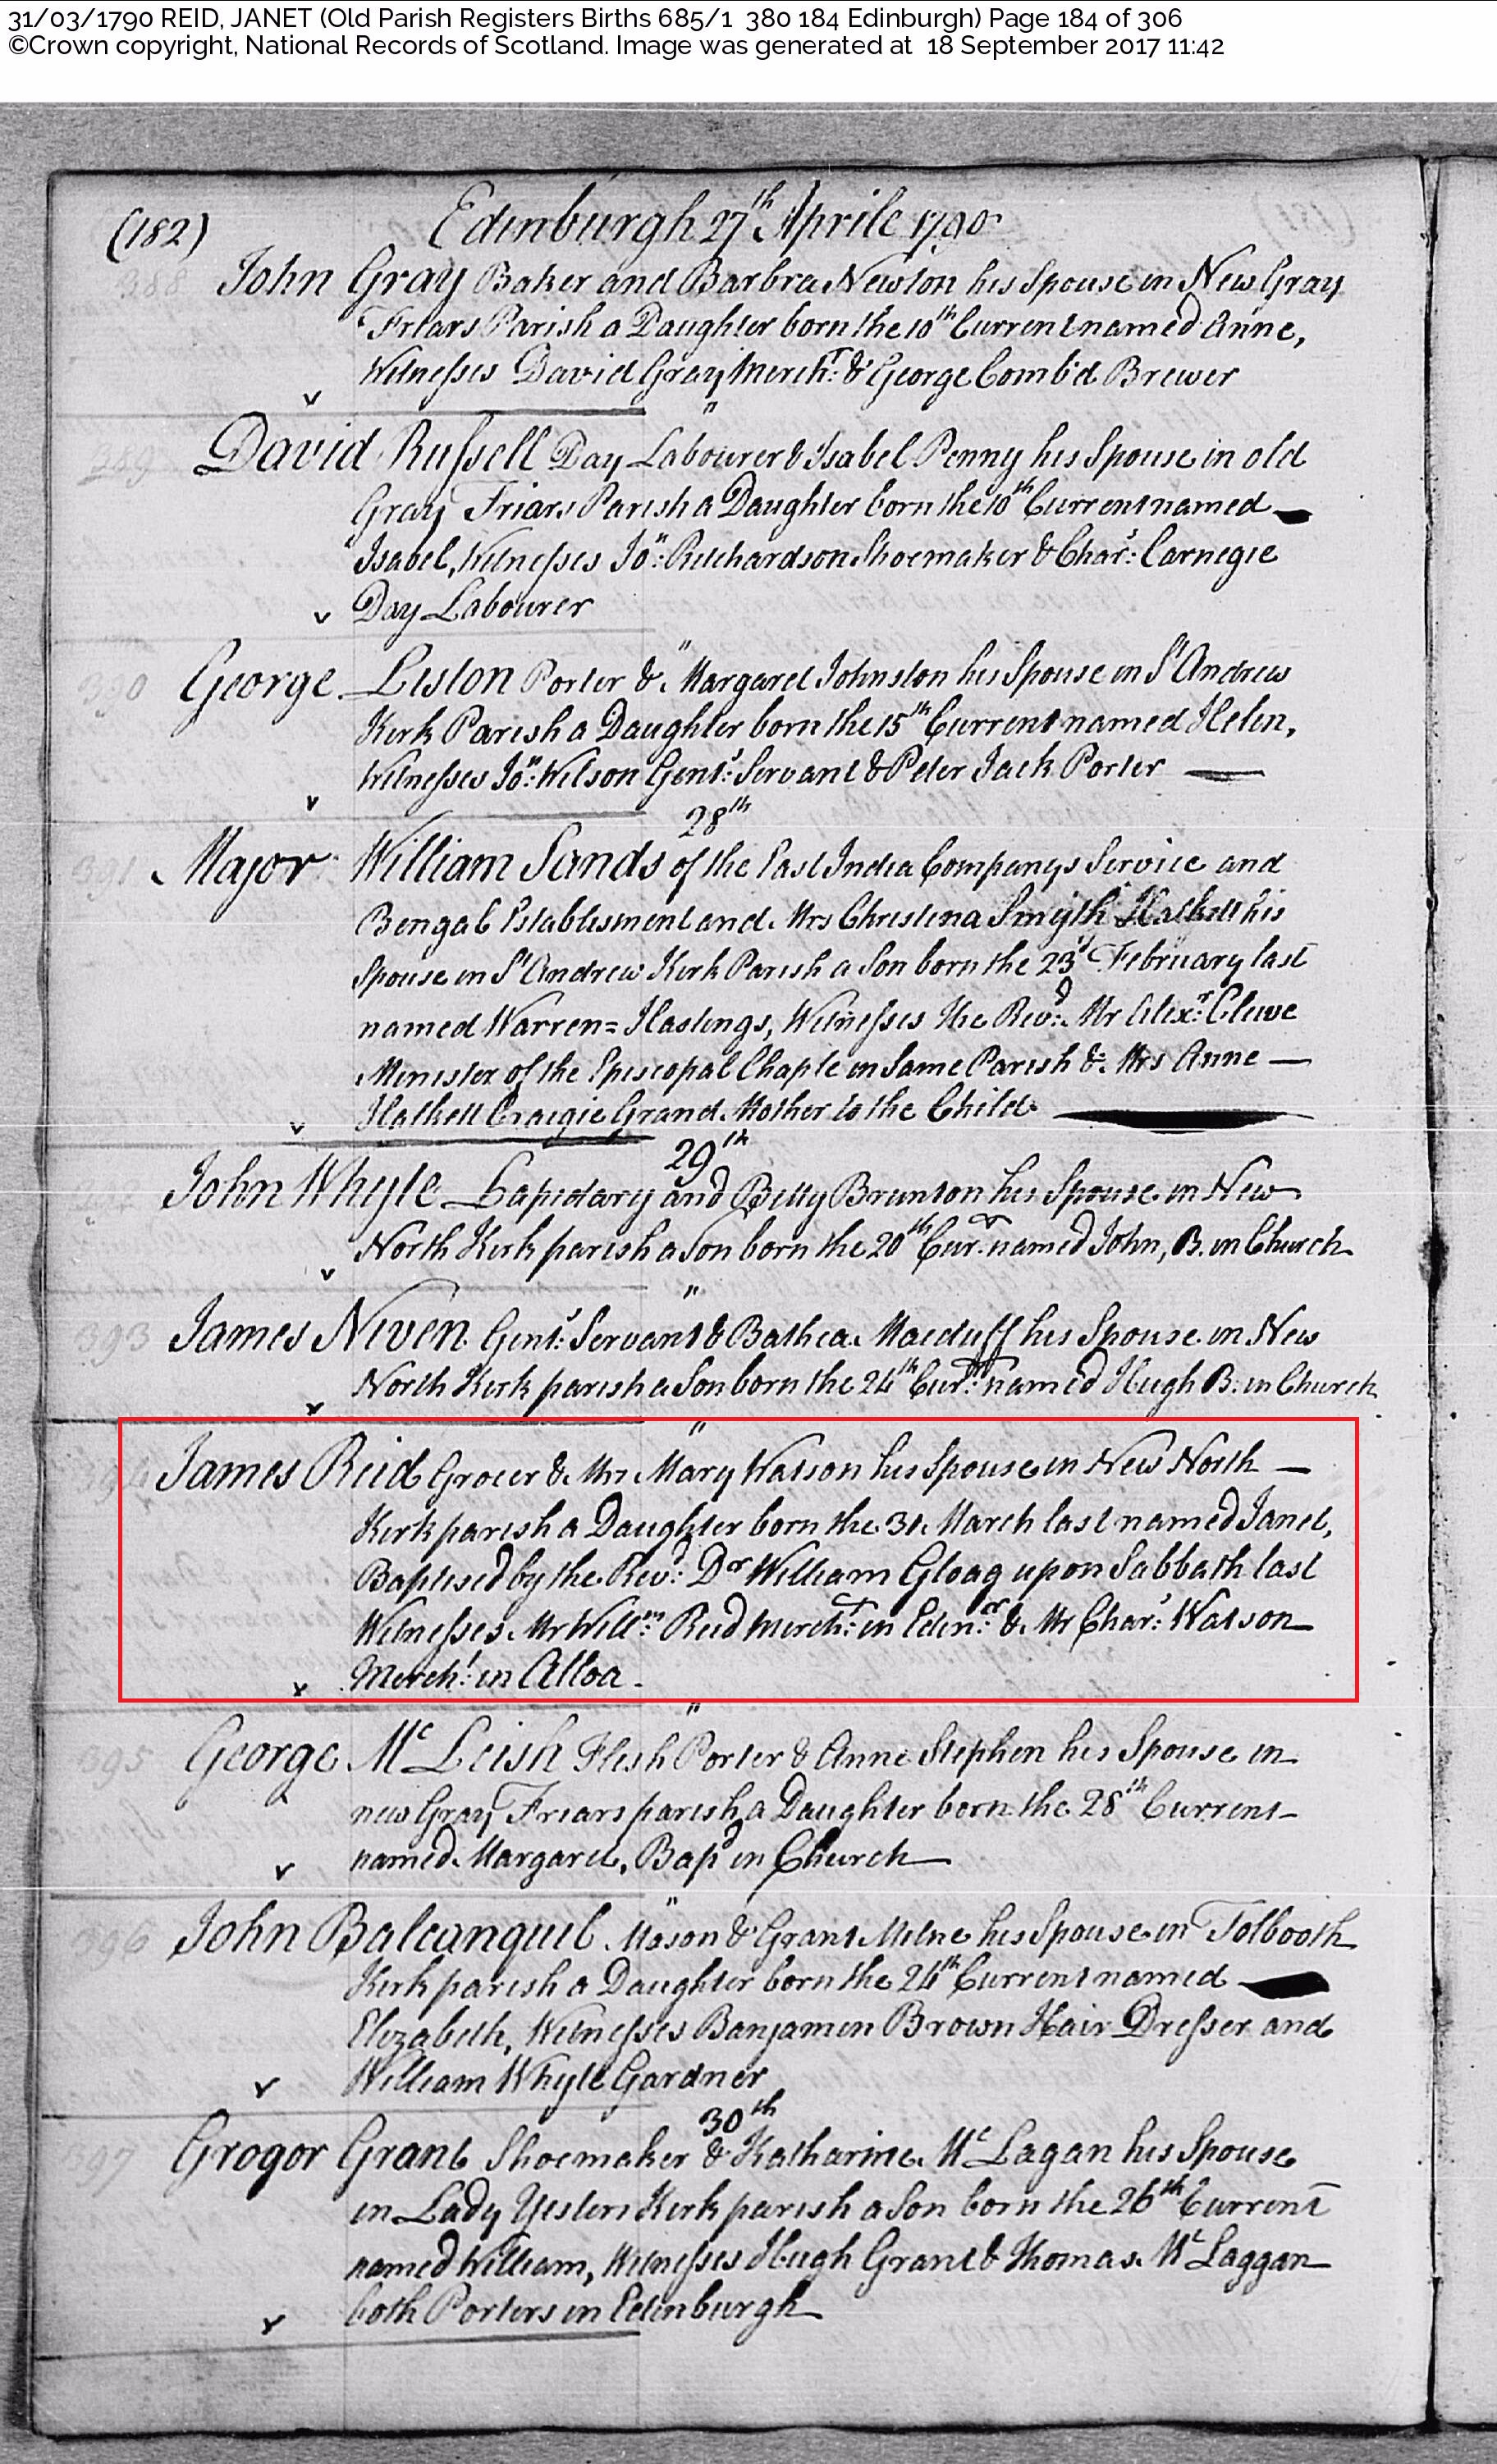 31/03/1790 REID, JANET (Old Parish Registers Births 685/1 380 184 Edinburgh) Page 184 of 306
©Crown copyright, National Records of Scotland. Image was generated at 18 September 2017 11:42
(182) Edinburgh 27th Aprile 1790
388 John Gray Baker and Barbra Newton his Spouse in New Gray
Friars Parish a Daughter born the 10th Current named Anne,
Witnesses David Gray Mercht: & George Comb'd Brewer
v "
389 David Russell Day Labourer & Isabel Penny his Spouse in old
Gray Friars Parish a Daughter born the 10th Current named
Isabel, Witnesses Jon: Ritchardson Shoemaker & Chars: Carnegie
v Day Labourer
"
390 George Liston Porter & Margaret Johnston his Spouse in St Andrew
Kirk Parish a Daughter born the 15th Current named Helen,
Witnesses Jon: Wilson Gents: Servant & Peter Jack Porter
v 28th
391 Major William Sands of the East India Companys Service and
Bengal Establisment and Mrs Christina Smyth Halkett his
Spouse in St Andrew Kirk Parish a Son born the 23d February last
named Warren=Hastings, Witnesses The Revd: Mr Alexr: Cleeve
Minister of the Episcopal Chaple in Same Parish & Mrs Anne
v Halkett Craigie Grand Mother to the Child
29th
John Whyte Lapidary and Betty Brunton his Spouse in New
North Kirk parish a Son born the 20th Curt. named John, B. in Church
v "
393 James Niven Gents: Servant & Bathea Macduff his Spouse in New
North Kirk parish a Son born the 24th Curt: named Hugh B. in Church
v "
394 James Reid Grocer & Mrs Mary Watson his Spouse in New North
Kirk parish a Daughter born the 31 March last named Janet,
Baptised by the Revd: Dr William Gloag upon Sabbath last
Witnesses Mr Willm: Reid Mercht: in Edinr: & Mr Chars: Watson
v Mercht: in Alloa
"
395 George McLeish Flesh Porter & Anne Stephen his Spouse in
new Gray Friars parish a Daughter born the 28th Current
v named Margaret, Bapd in Church
"
396 John Balcanquil Mason & Grant Milne his Spouse in Tolbooth
Kirk parish a Daughter born the 24th Current named
Elizabeth, Witnesses Banjamen Brown Hair Dresser and
v William Whyte Gardner
30th
397 Grogor Grant Shoemaker & Katharine McLagan his Spouse
in Lady Yesters Kirk parish a Son born the 26th Current
named William, Witnesses Hugh Grant & Thomas McLaggan
v both Porters in Edinburgh